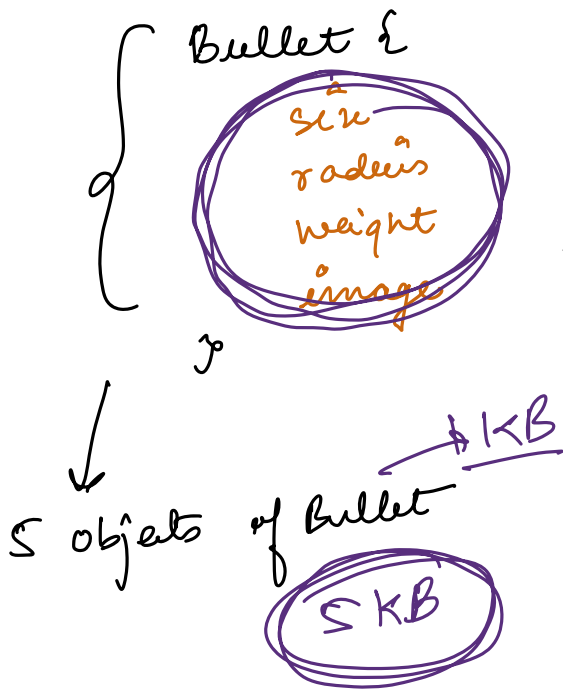 Bullet {
size
radius
weight
image
}
1 KB
5 objects of Bullet
5 KB